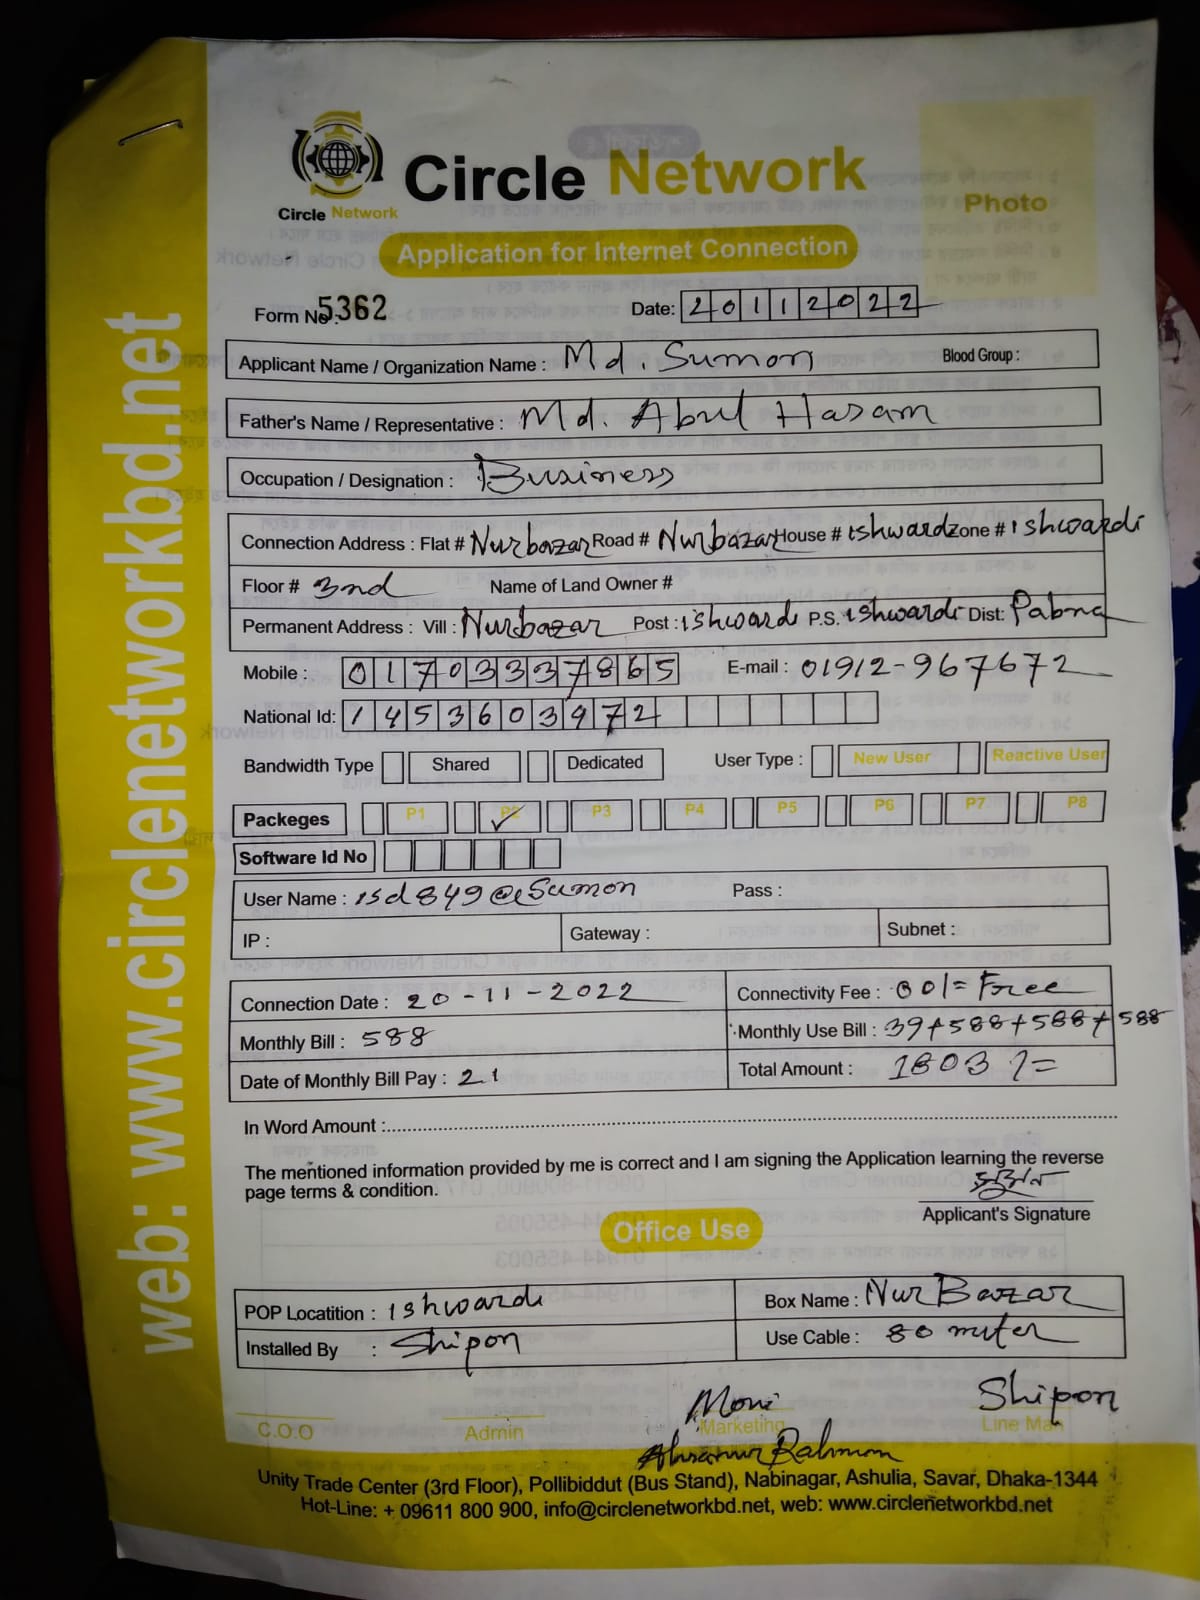 Circle Network
Circle Network
Photo
Application for Internet Connection
Form No: 5362 Date: 20112022
Applicant Name / Organization Name : Md. Sumon Blood Group :
Father's Name / Representative : Md. Abul Hasam
Occupation / Designation : Business
Connection Address : Flat # Nurbazar Road # Nurbazar House # ishwardi Zone # ishwardi
Floor # 3nd Name of Land Owner #
Permanent Address : Vill : Nurbazar Post : ishwardi P.S. ishwardi Dist: Pabna
Mobile : 01703337865 E-mail : 01912-967672
National Id: 1453603972
Bandwidth Type Shared Dedicated User Type : New User Reactive User
Packeges P1 P2 P3 P4 P5 P6 P7 P8
Software Id No
User Name : isd849@Sumon Pass :
IP : Gateway : Subnet :
Connection Date : 20-11-2022 Connectivity Fee : 00/= Free
Monthly Bill : 588 Monthly Use Bill : 39+588+588+588
Date of Monthly Bill Pay : 21 Total Amount : 1803/=
In Word Amount :
The mentioned information provided by me is correct and I am signing the Application learning the reverse
page terms & condition.
সুমন
Applicant's Signature
Office Use
POP Locatition : ishwardi Box Name : Nur Bazar
Installed By : Shipon Use Cable : 80 miter
Moni Shipon
C.O.O Admin Marketing Line Man
Rahman
Unity Trade Center (3rd Floor), Pollibiddut (Bus Stand), Nabinagar, Ashulia, Savar, Dhaka-1344
Hot-Line: + 09611 800 900, info@circlenetworkbd.net, web: www.circlenetworkbd.net
web: www.circlenetworkbd.net